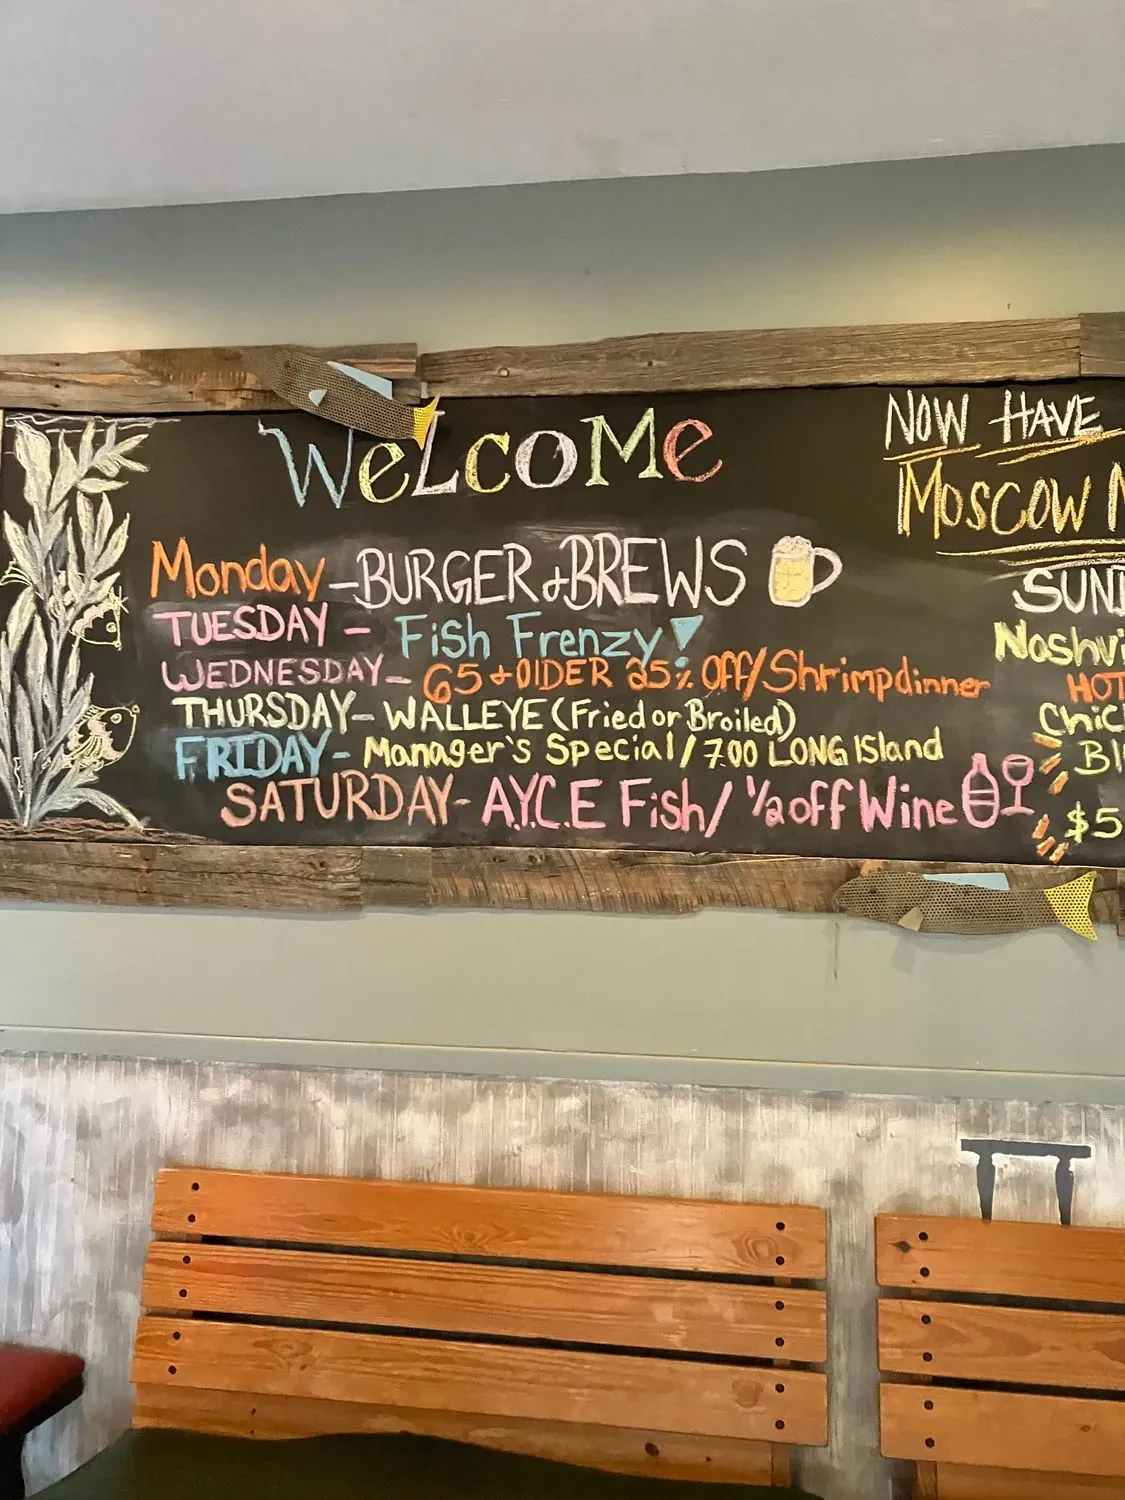 WeLcoMe
Monday - BURGER & BREWS
TUESDAY - Fish Frenzy!
WEDNESDAY - 65 + OlDER 25% Off/Shrimp dinner
THURSDAY - WALLEYE (Fried or Broiled)
FRIDAY - Manager's Special / 7.00 LONG ISland
SATURDAY - A.Y.C.E Fish / 1/2 off Wine
NOW HAVE
MOSCOW
HOT
$5